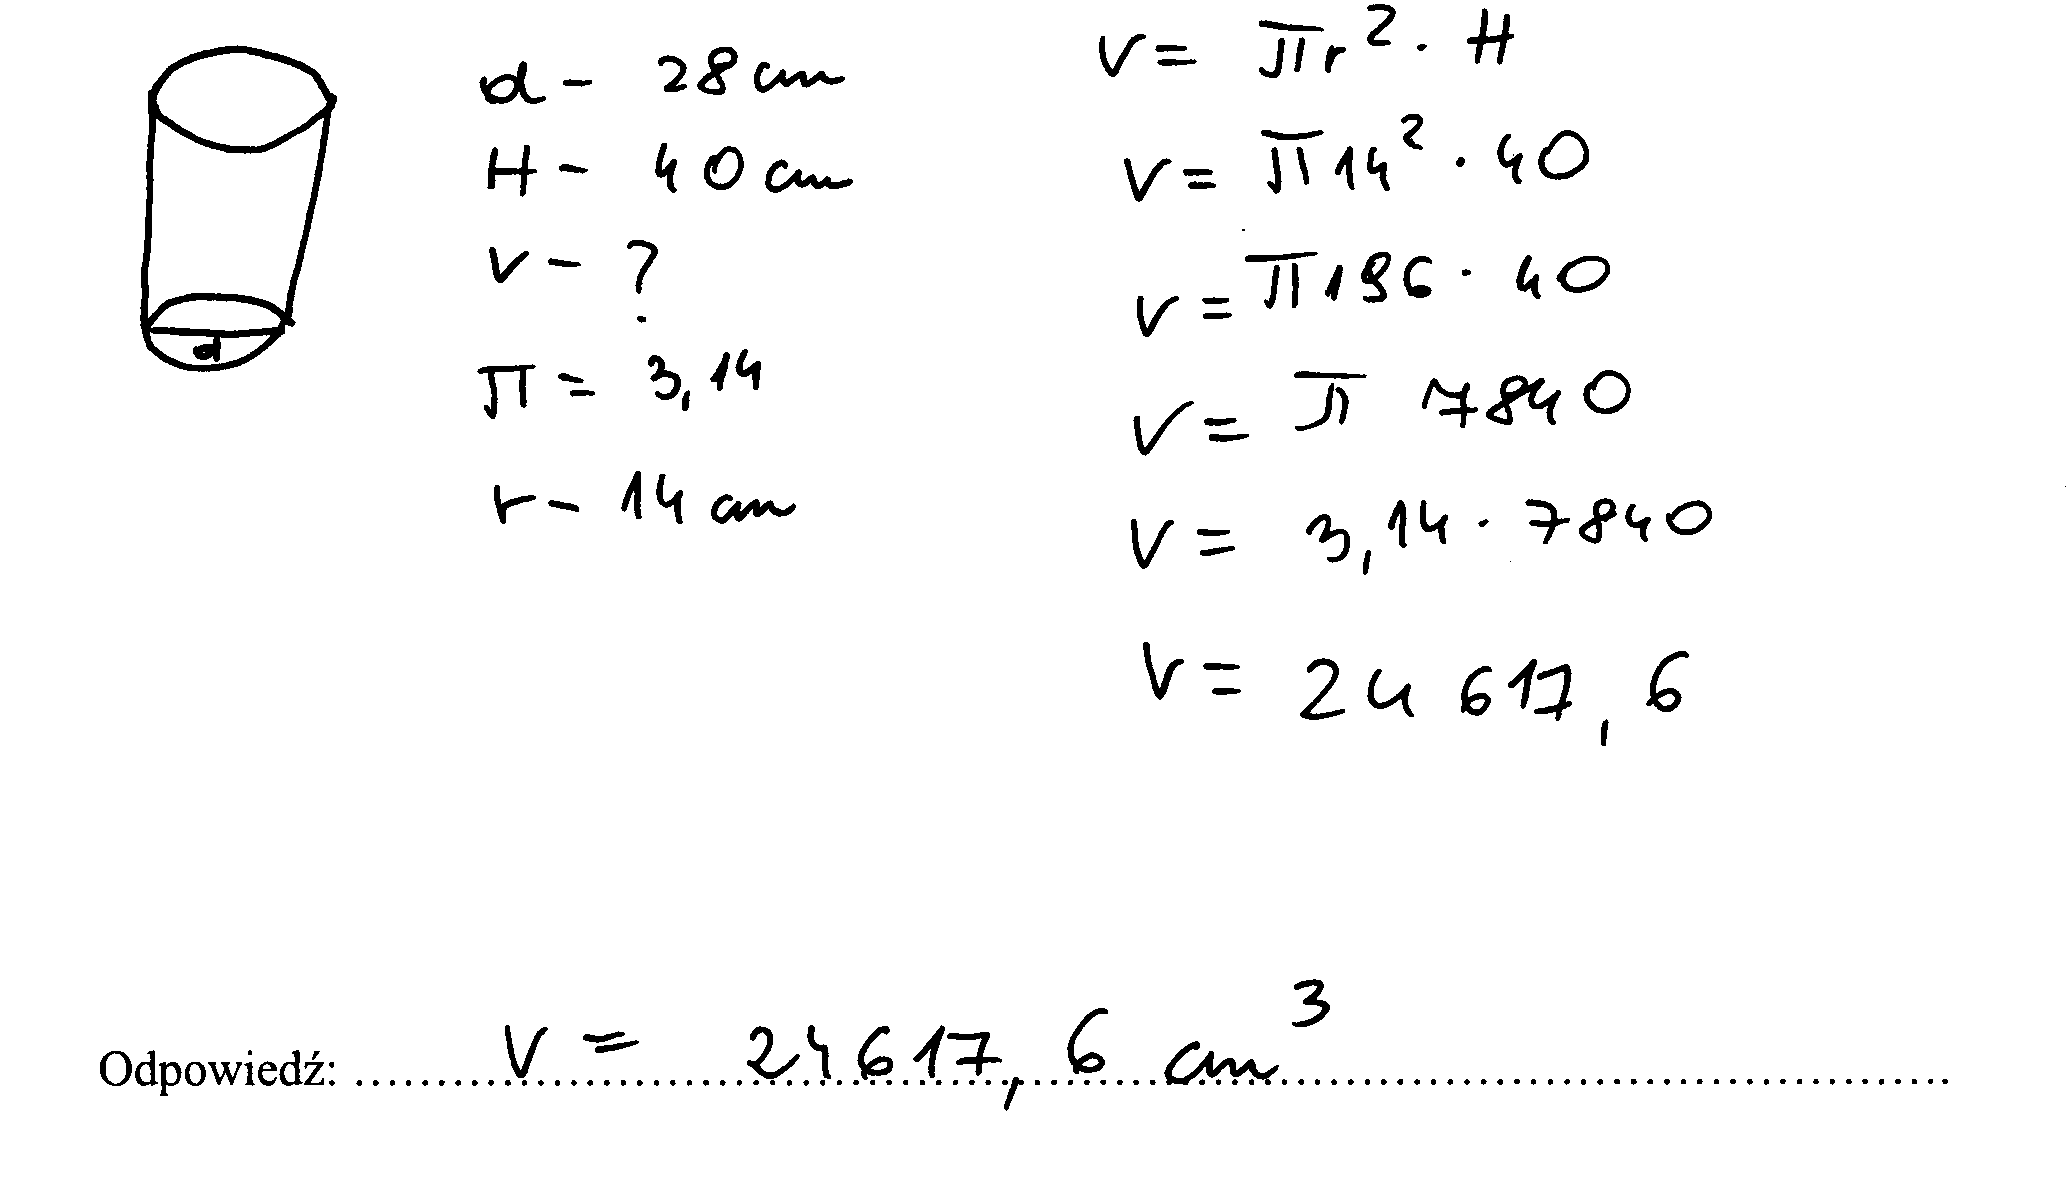 d - 28 cm
H - 40 cm
V - ?
π = 3,14
r - 14 cm
d
V = πr² · H
V = π14² · 40
V = π196 · 40
V = π 7840
V = 3,14 · 7840
V = 24 617,6
Odpowiedź: V = 24617,6 cm³